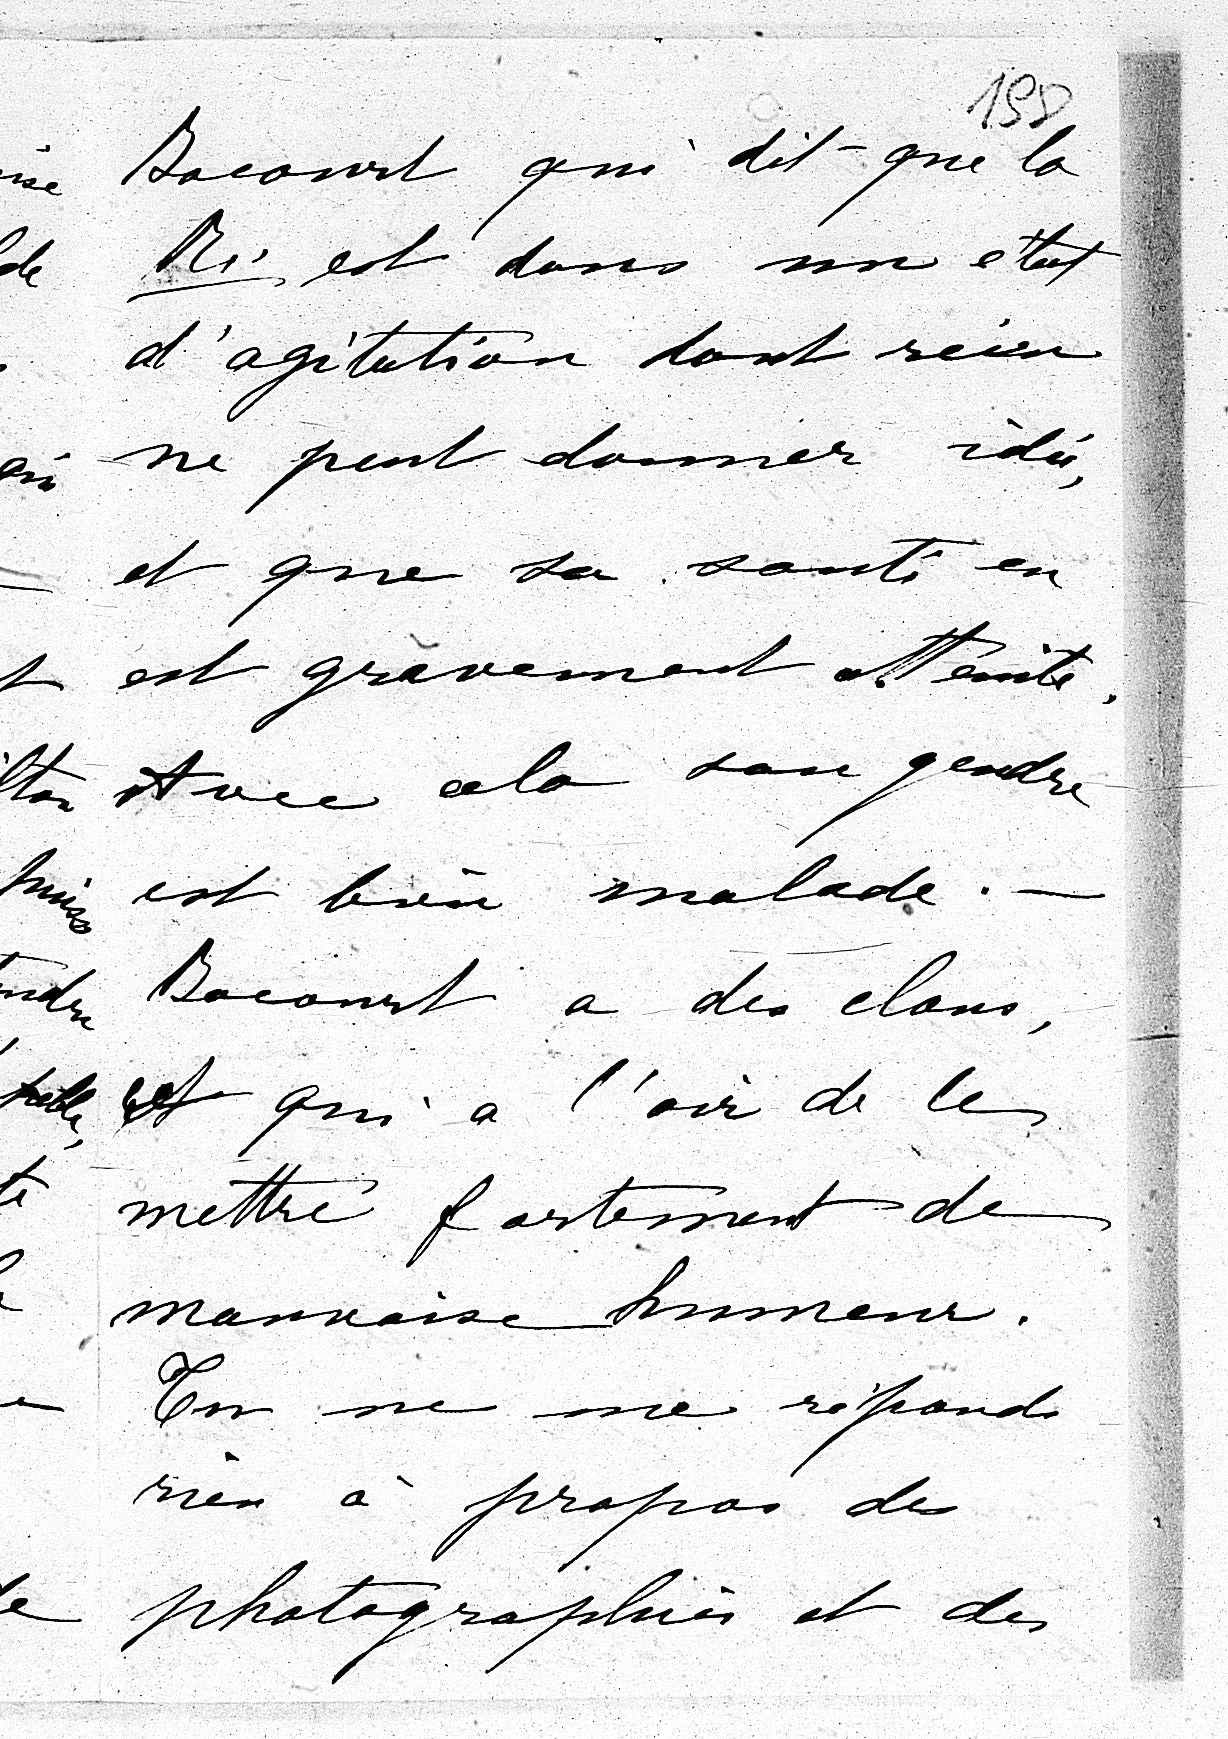 198
Bocourt qui dit que la
Ri est dans un état
d'agitation dont rien
ne peut donner idée,
et que sa santé en
est gravement atteinte.
Avec cela son gendre
est bien malade. —
Bocourt a des clous,
et qui a l'air de le
mettre fortement de
mauvaise humeur.
Tu ne me réponds
rien à propos des
photographies et des